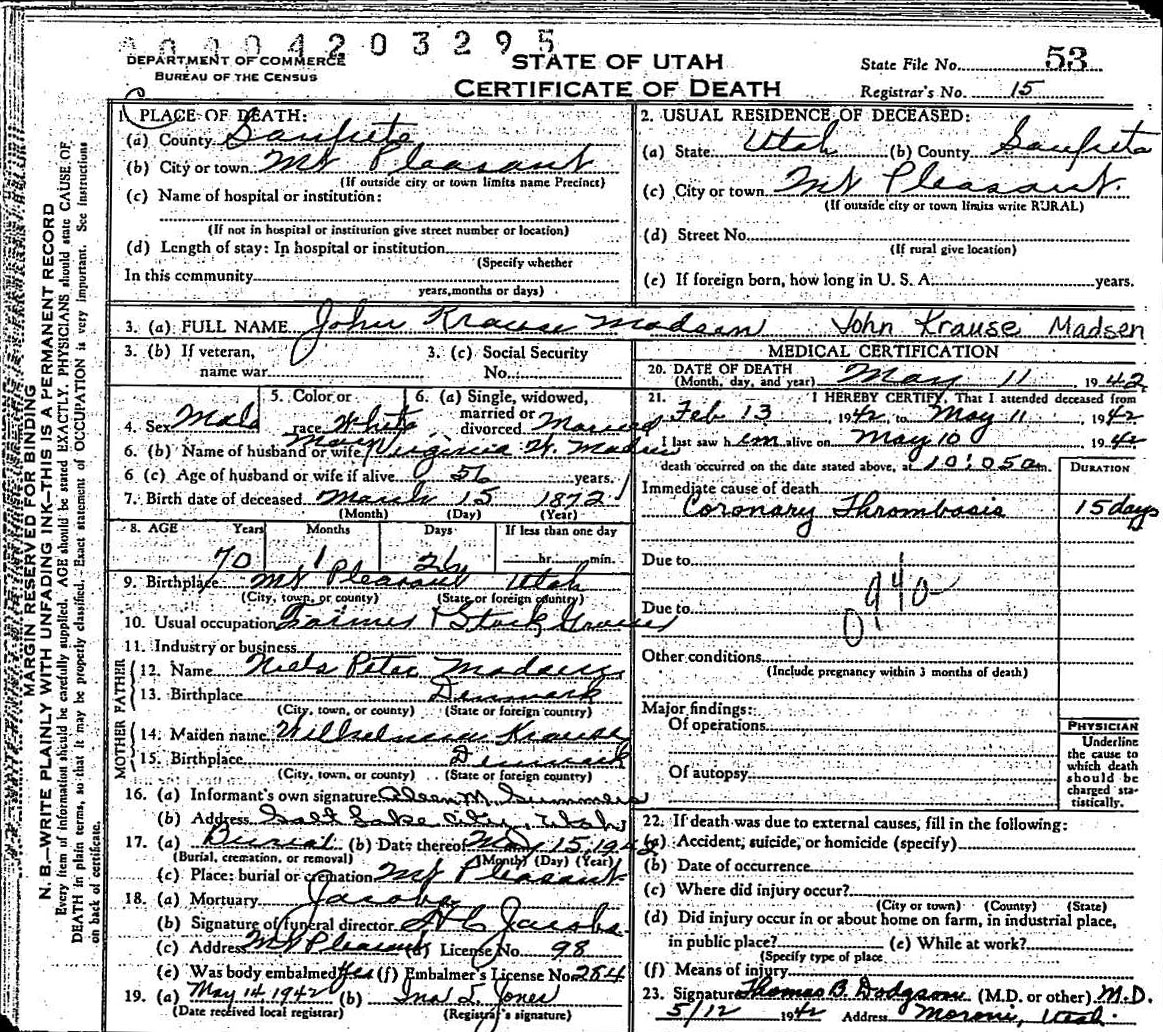 0 0 0 0 4 2 0 3 2 9 5
DEPARTMENT OF COMMERCE
BUREAU OF THE CENSUS
STATE OF UTAH
CERTIFICATE OF DEATH
State File No. 53
Registrar's No. 15
MARGIN RESERVED FOR BINDING
N. B.—WRITE PLAINLY WITH UNFADING INK—THIS IS A PERMANENT RECORD
Every item of information should be carefully supplied. AGE should be stated EXACTLY. PHYSICIANS should state CAUSE OF
DEATH in plain terms, so that it may be properly classified. Exact statement of OCCUPATION is very important. See instructions
on back of certificate.
1. PLACE OF DEATH:
(a) County Sanpete
(b) City or town Mt Pleasant
(If outside city or town limits name Precinct)
(c) Name of hospital or institution:
(If not in hospital or institution give street number or location)
(d) Length of stay: In hospital or institution
(Specify whether
In this community
years, months or days)
2. USUAL RESIDENCE OF DECEASED:
(a) State Utah (b) County Sanpete
(c) City or town Mt Pleasant.
(If outside city or town limits write RURAL)
(d) Street No.
(If rural give location)
(e) If foreign born, how long in U. S. A. years.
3. (a) FULL NAME John Krause Madsen John Krause Madsen
3. (b) If veteran,
name war
3. (c) Social Security
No.
4. Sex Male
5. Color or
race White
6. (a) Single, widowed,
married or
divorced Married
6. (b) Name of husband or wife Mary Virginia W. Madsen
6 (c) Age of husband or wife if alive 56 years.
7. Birth date of deceased March 15 1872
(Month) (Day) (Year)
8. AGE Years Months Days If less than one day
70 1 26 hr. min.
9. Birthplace Mt Pleasant Utah
(City, town, or county) (State or foreign country)
10. Usual occupation Farmer & Stock Grower
11. Industry or business
FATHER
12. Name Niels Peter Madsen
13. Birthplace Denmark
(City, town, or county) (State or foreign country)
MOTHER
14. Maiden name Wilhelmina Krause
15. Birthplace Denmark
(City, town, or county) (State or foreign country)
16. (a) Informant's own signature M. Summers
(b) Address Salt Lake City, Utah
17. (a) Burial (b) Date thereof May 15, 1942
(Burial, cremation, or removal) (Month) (Day) (Year)
(c) Place: burial or cremation Mt Pleasant
18. (a) Mortuary Jacobs
(b) Signature of funeral director H C Jacobs
(c) Address Mt Pleasant (d) License No. 98
(e) Was body embalmed Yes (f) Embalmer's License No. 284
19. (a) May 14 1942 (b) Jones
(Date received local registrar) (Registrar's signature)
MEDICAL CERTIFICATION
20. DATE OF DEATH
(Month, day, and year) May 11, 1942
21. I HEREBY CERTIFY, That I attended deceased from
Feb 13, 1942, to May 11, 1942
I last saw h im alive on May 10 1942
death occurred on the date stated above, at 10:05 a m.
DURATION
Immediate cause of death
Coronary Thrombosis 15 days
Due to
Due to
094 0
Other conditions
(Include pregnancy within 3 months of death)
Major findings:
Of operations
Of autopsy
PHYSICIAN
Underline
the cause to
which death
should be
charged sta-
tistically.
22. If death was due to external causes, fill in the following:
(a) Accident, suicide, or homicide (specify)
(b) Date of occurrence
(c) Where did injury occur?
(City or town) (County) (State)
(d) Did injury occur in or about home on farm, in industrial place,
in public place? (e) While at work?
(Specify type of place
(f) Means of injury
23. Signature Thomas B. Dodgson (M.D. or other) M.D.
5/12 1942 Address Moroni, Utah.